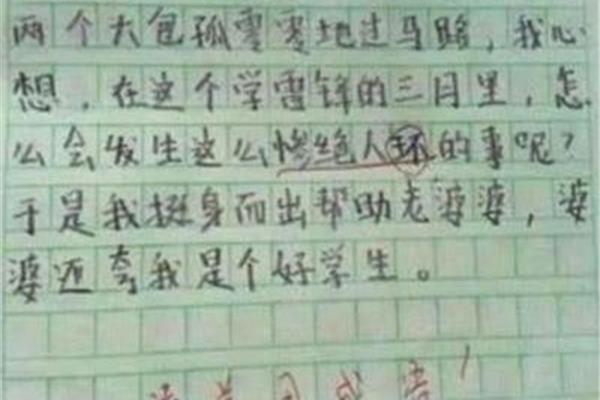 两个大包孤零零地过马路，我心
想，在这个学雷锋的三月里，怎
么会发生这么惨绝人环的事呢？
于是我挺身而出帮助老婆婆，婆
婆还夸我是个好学生。